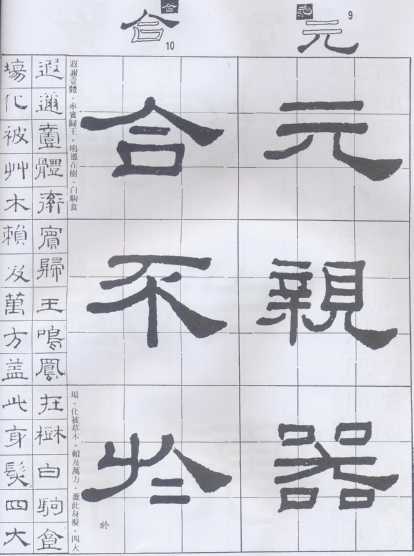 元 9
合 10
元親器
合不於
於
遐邇壹體，率賓歸王，鳴鳳在樹，白駒食
場，化被草木，賴及萬方，蓋此身髮，四大
遐邇壹體率賓歸王鳴鳳在樹白駒食
場化被艸木賴及萬方蓋此身髮四大